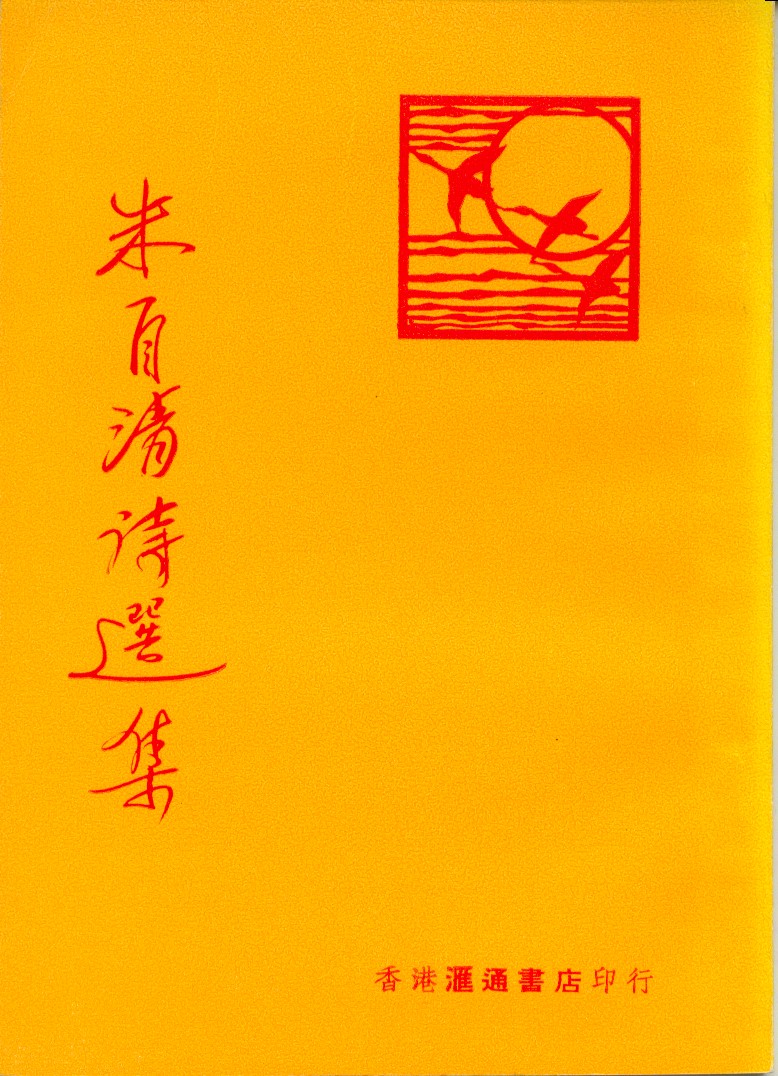 朱自清詩選集
香港滙通書店印行